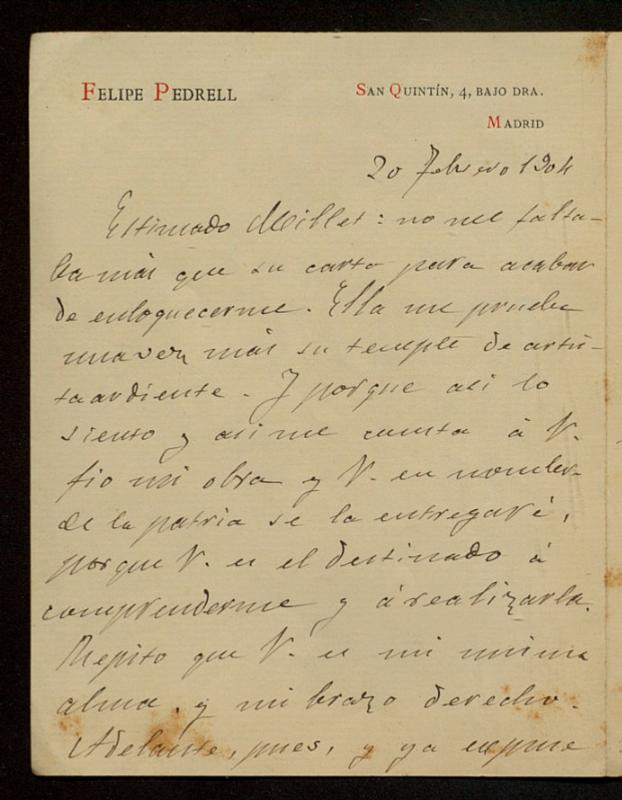 FELIPE PEDRELL
SAN QUINTÍN, 4, BAJO DRA.
MADRID
20 Febrero 1904
Estimado Millet: no me falta-
ba más que su carta para acabar
de enloquecerme. Ella me prueba
una vez más su temple de artis-
ta ardiente. Y porque asi lo
siento y asi me consta á V.
fio mi obra y V. en nombre
de la patria se la entregaré,
porque V. es el destinado á
comprenderme y á realizarla.
Repito que V. es mi misma
alma, y mi brazo derecho.
Adelante, pues, y ya